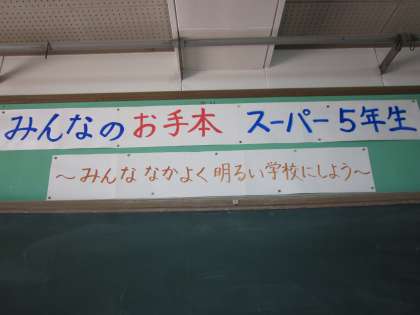 みんなのお手本 スーパー5年生
～みんななかよく明るい学校にしよう～